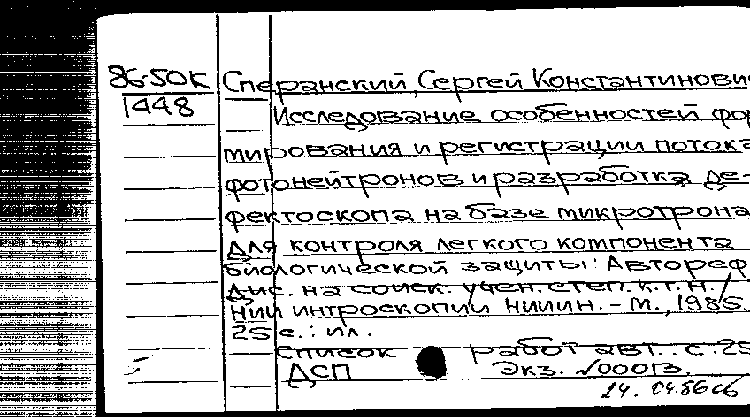 86-50К Сперанский, Сергей Константинович
1448 Исследование особенностей фор
мирования и регистрации потока
фотонейтронов и разработка де-
фектоскопа на базе микротрона
для контроля легкого компонента
биологической защиты: Автореф
дис. на соиск. учен. степ. к.т.н. /
НИИ интроскопии НИИИН. - М., 1985.
25 с.: ил.
Список работ авт.: с. 25
ДСП Экз. №00013.
24. 04.86